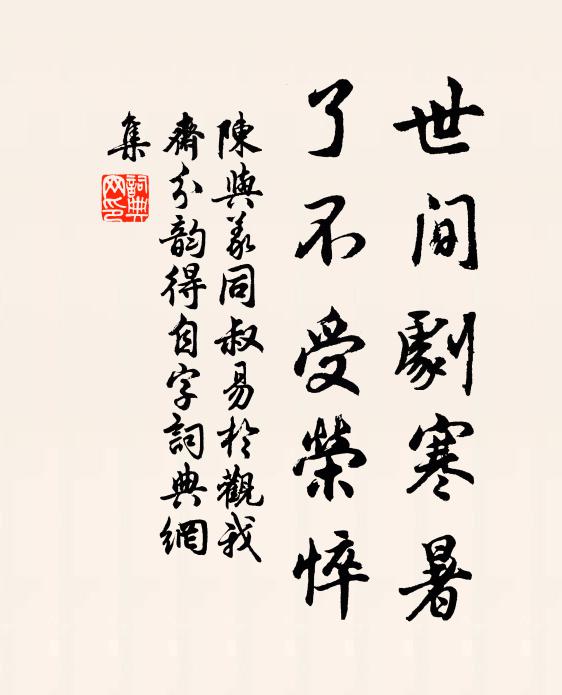 世間劇寒暑
了不受榮悴
陳與義同叔易於觀我
齋分韵得自字詞典網
集
詞典
网印